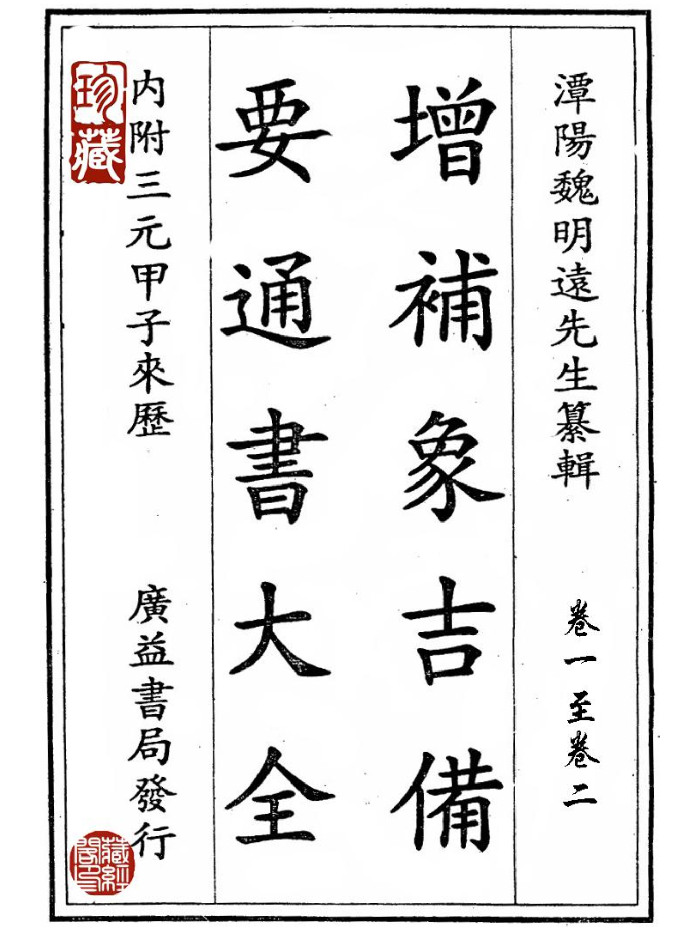 潭陽魏明遠先生纂輯
卷一至卷二
增補象吉備
要通書大全
內附三元甲子來歷
廣益書局發行
珍藏
藏經閣印